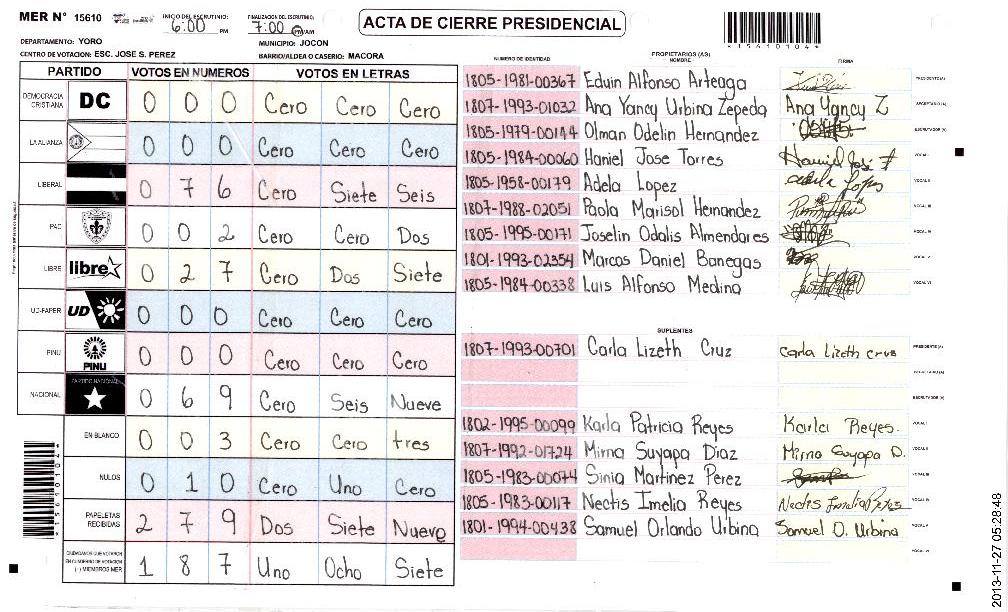 MER N° 15610
INICIO DEL ESCRUTINIO: 6:00 PM
FINALIZACION DEL ESCRUTINIO: 7:00 PM/AM
ACTA DE CIERRE PRESIDENCIAL
*15610104*
DEPARTAMENTO: YORO
MUNICIPIO: JOCON
CENTRO DE VOTACION: ESC. JOSE S. PEREZ
BARRIO/ALDEA O CASERIO: MACORA
PARTIDO VOTOS EN NUMEROS VOTOS EN LETRAS
DEMOCRACIA CRISTIANA DC 0 0 0 Cero Cero Cero
LA ALIANZA 0 0 0 Cero Cero Cero
LIBERAL 0 7 6 Cero Siete Seis
PAC 0 0 2 Cero Cero Dos
LIBRE libre 0 2 7 Cero Dos Siete
UD-FAPER UD 0 0 0 Cero Cero Cero
PINU PINU 0 0 0 Cero Cero Cero
NACIONAL PARTIDO NACIONAL 0 6 9 Cero Seis Nueve
EN BLANCO 0 0 3 Cero Cero tres
NULOS 0 1 0 Cero Uno Cero
PAPELETAS RECIBIDAS 2 7 9 Dos Siete Nueve
CIUDADANOS QUE VOTARON EN CUADERNO DE VOTACION (-) MIEMBROS MER 1 8 7 Uno Ocho Siete
*15610104*
PROPIETARIOS (AS)
NUMERO DE IDENTIDAD NOMBRE FIRMA
1805-1981-00367 Eduin Alfonso Arteaga PRESIDENTE(A)
1807-1993-01032 Ana Yancy Urbina Zepeda Ana Yancy Z
1805-1979-00144 Olman Odelin Hernandez ESCRUTADOR (A)
1805-1984-00060 Haniel Jose Torres VOCAL I
1805-1958-00179 Adela Lopez Adela Lopez VOCAL II
1807-1988-02051 Paola Marisol Hernandez VOCAL III
1805-1995-00171 Joselin Odalis Almendares VOCAL IV
1801-1993-02354 Marcos Daniel Banegas VOCAL V
1805-1984-00338 Luis Alfonso Medina VOCAL VI
SUPLENTES
1807-1993-00701 Carla Lizeth Cruz carla Lizeth cruz PRESIDENTE(A)
SECRETARIO (A)
ESCRUTADOR (A)
1802-1995-00099 Karla Patricia Reyes Karla Reyes. VOCAL I
1807-1992-01724 Mirna Suyapa Diaz Mirna Suyapa D. VOCAL II
1805-1983-00074 Sinia Martinez Perez VOCAL III
1805-1983-00117 Nectis Imelia Reyes Nectis Imelia Reyes VOCAL IV
1801-1994-00438 Samuel Orlando Urbina Samuel O. Urbina VOCAL V
VOCAL VI
2013-11-27 05:28:48